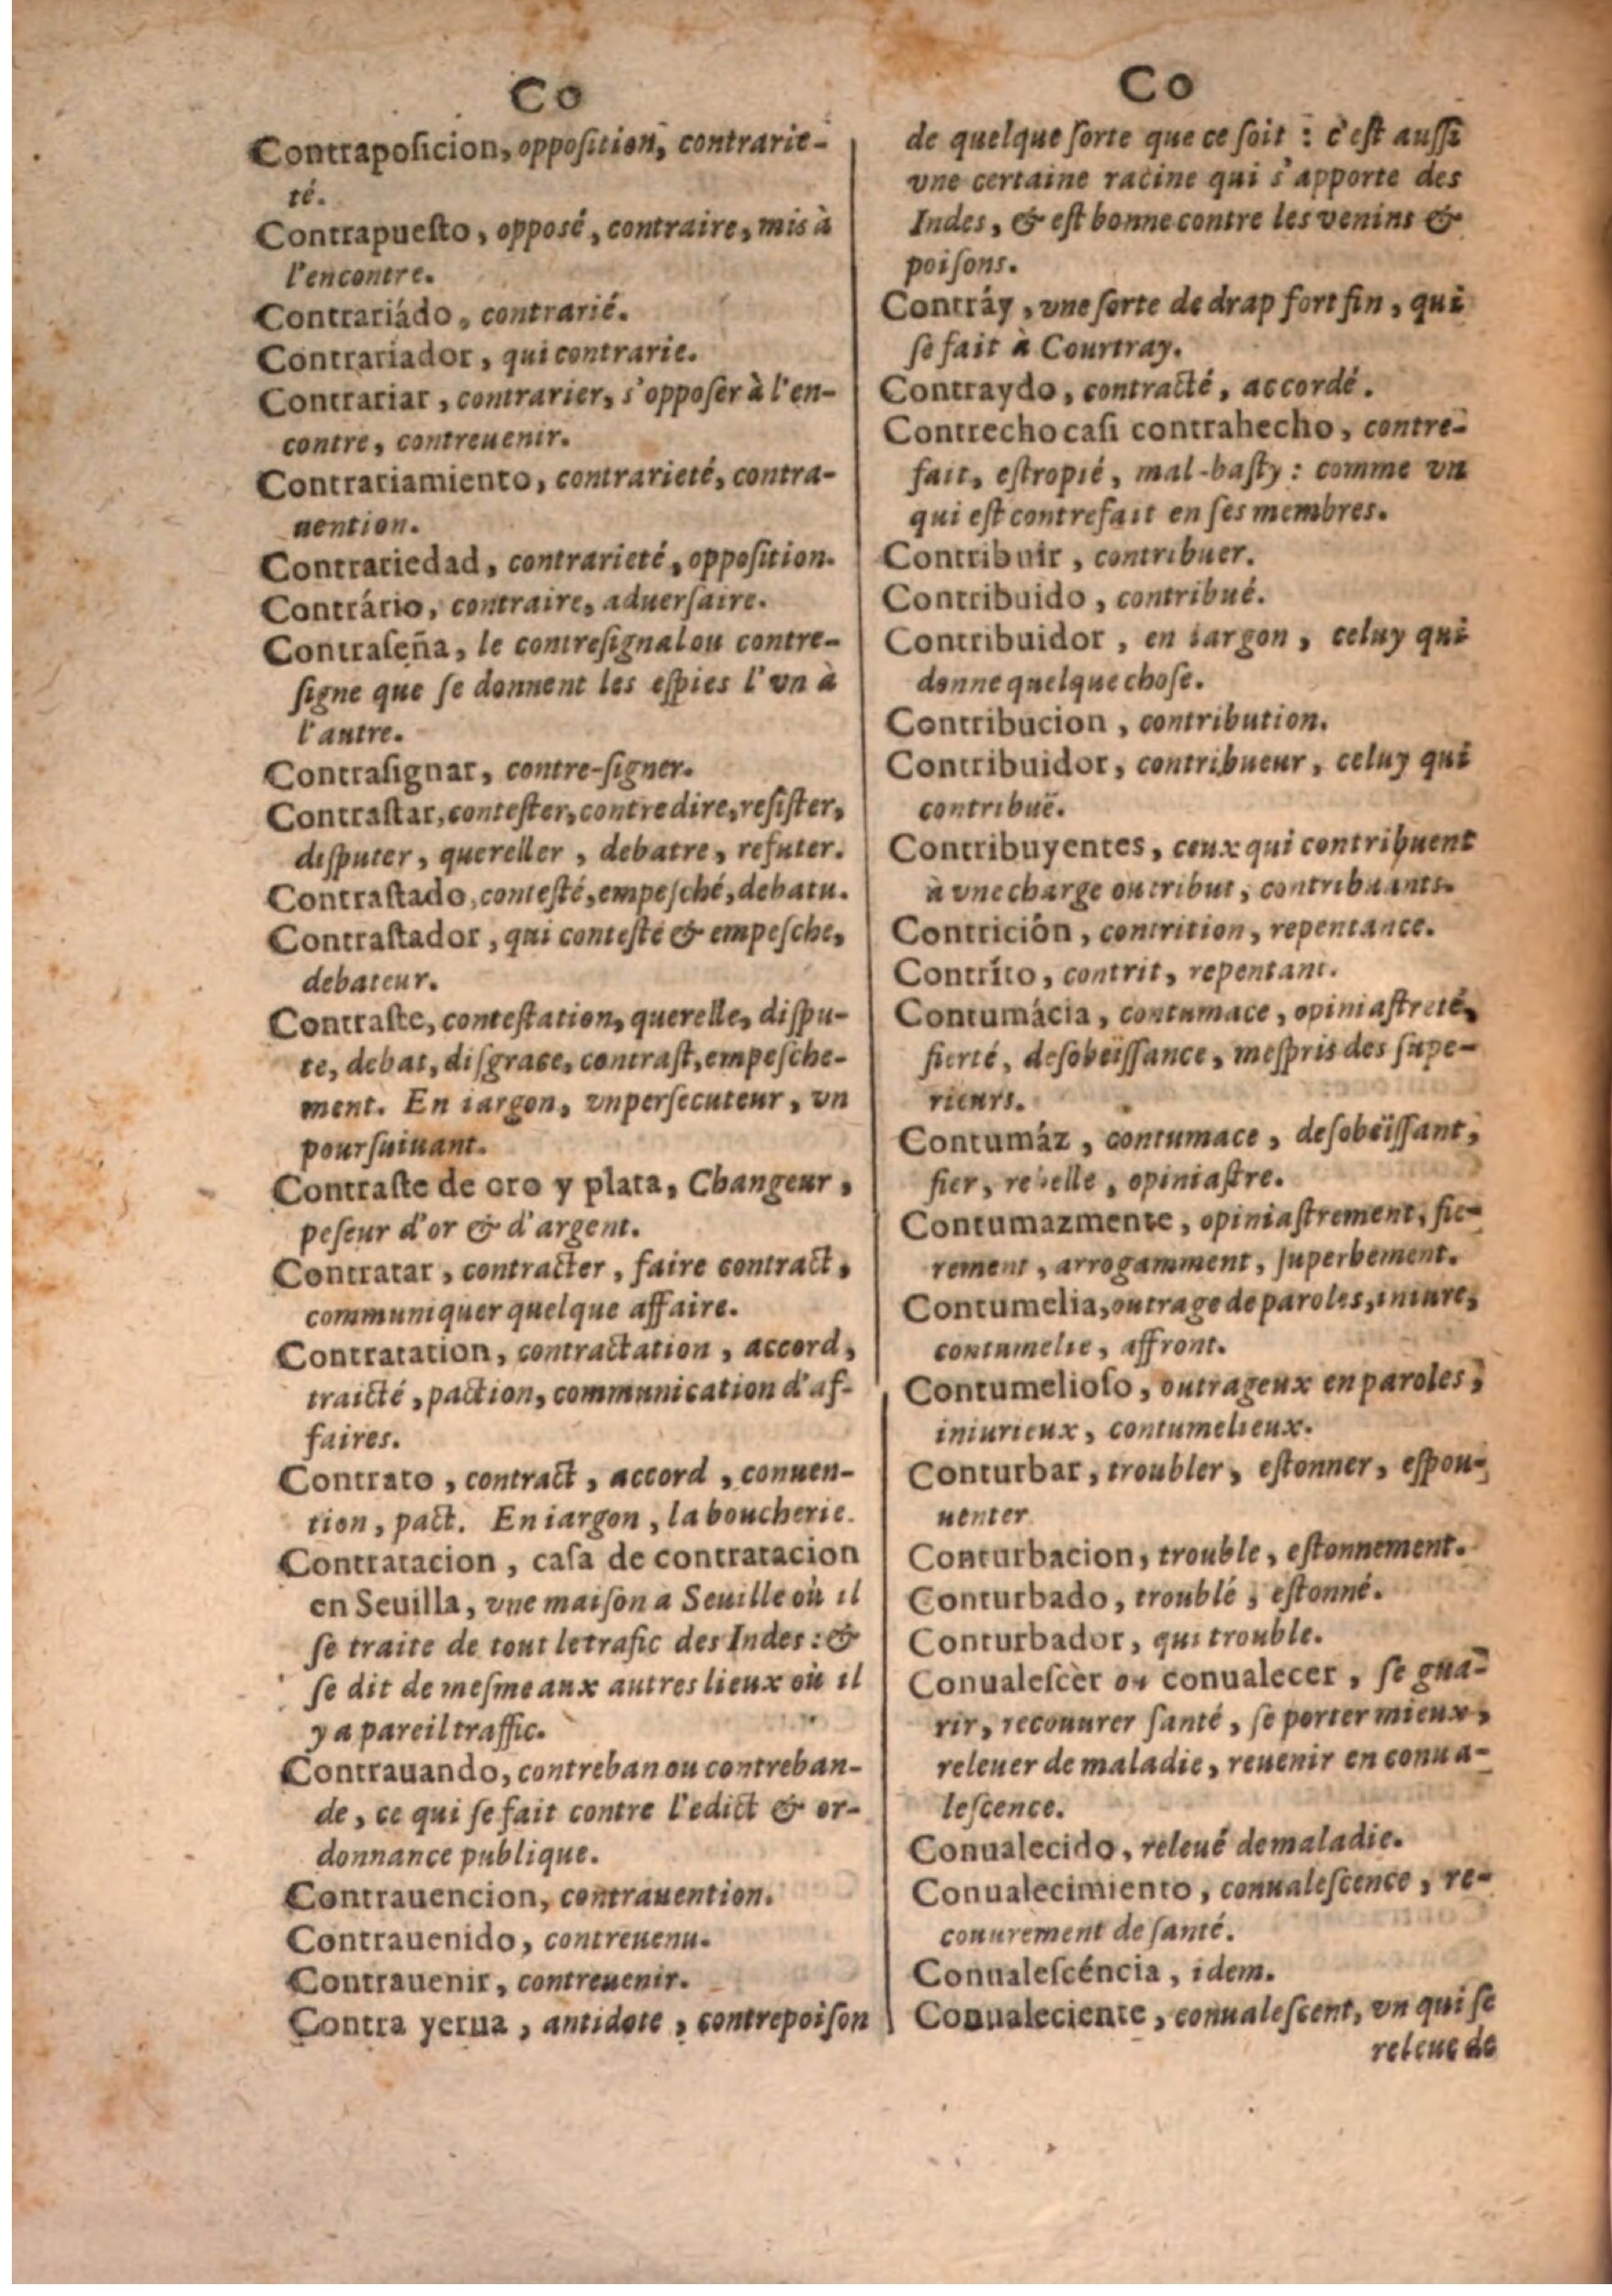 Co
Contraposicion, opposition, contrarie-
té.
Contrapuesto, opposé, contraire, mis à
l'encontre.
Contrariádo, contrarié.
Contrariador, qui contrarie.
Contrariar, contrarier, s'opposer à l'en-
contre, contreuenir.
Contrariamiento, contrarieté, contra-
uention.
Contrariedad, contrarieté, opposition.
Contrário, contraire, aduersaire.
Contraseña, le contresignal ou contre-
signe que se donnent les espies l'vn à
l'autre.
Contrasignar, contre-signer.
Contrastar, contester, contredire, resister,
disputer, quereller, debatre, refuter.
Contrastado, contesté, empesché, debatu.
Contrastador, qui conteste & empesche,
debateur.
Contraste, contestation, querelle, dispu-
te, debat, disgrace, contrast, empesche-
ment. En iargon, vn persecuteur, vn
poursuiuant.
Contraste de oro y plata, Changeur,
peseur d'or & d'argent.
Contratar, contracter, faire contract,
communiquer quelque affaire.
Contratation, contractation, accord,
traicté, paction, communication d'af-
faires.
Contrato, contract, accord, conuen-
tion, pact. En iargon, la boucherie.
Contratacion, casa de contratacion
en Seuilla, vne maison a Seuille où il
se traite de tout le trafic des Indes: &
se dit de mesme aux autres lieux où il
y a pareil traffic.
Contrauando, contreban ou contreban-
de, ce qui se fait contre l'edict & or-
donnance publique.
Contrauencion, contrauention.
Contrauenido, contreuenu.
Contrauenir, contreuenir.
Contra yerua, antidote, contrepoison
Co
de quelque sorte que ce soit: c'est aussi
vne certaine racine qui s'apporte des
Indes, & est bonne contre les venins &
poisons.
Contráy, vne sorte de drap fort fin, qui
se fait à Courtray.
Contraydo, contracté, accordé.
Contrecho casi contrahecho, contre-
fait, estropié, mal-basty: comme vn
qui est contrefait en ses membres.
Contribuir, contribuer.
Contribuido, contribué.
Contribuidor, en iargon, celuy qui
donne quelque chose.
Contribucion, contribution.
Contribuidor, contribueur, celuy qui
contribuë.
Contribuyentes, ceux qui contribuent
à vne charge ou tribut, contribuants.
Contrición, contrition, repentance.
Contríto, contrit, repentant.
Contumácia, contumace, opiniastreté,
fierté, desobeïssance, mespris des supe-
rieurs.
Contumáz, contumace, desobeïssant,
fier, rebelle, opiniastre.
Contumazmente, opiniastrement, fie-
rement, arrogamment, superbement.
Contumelia, outrage de paroles, iniure,
contumelie, affront.
Contumelioso, outrageux en paroles,
iniurieux, contumelieux.
Conturbar, troubler, estonner, espou-
uenter
Conturbacion, trouble, estonnement.
Conturbado, troublé, estonné.
Conturbador, qui trouble.
Conualescèr ou conualecer, se gua-
rir, recouurer santé, se porter mieux,
releuer de maladie, reuenir en conua-
lescence.
Conualecido, releué de maladie.
Conualecimiento, conualescence, re-
couurement de santé.
Conualescéncia, idem.
Conualeciente, conualescent, vn qui se
releue de